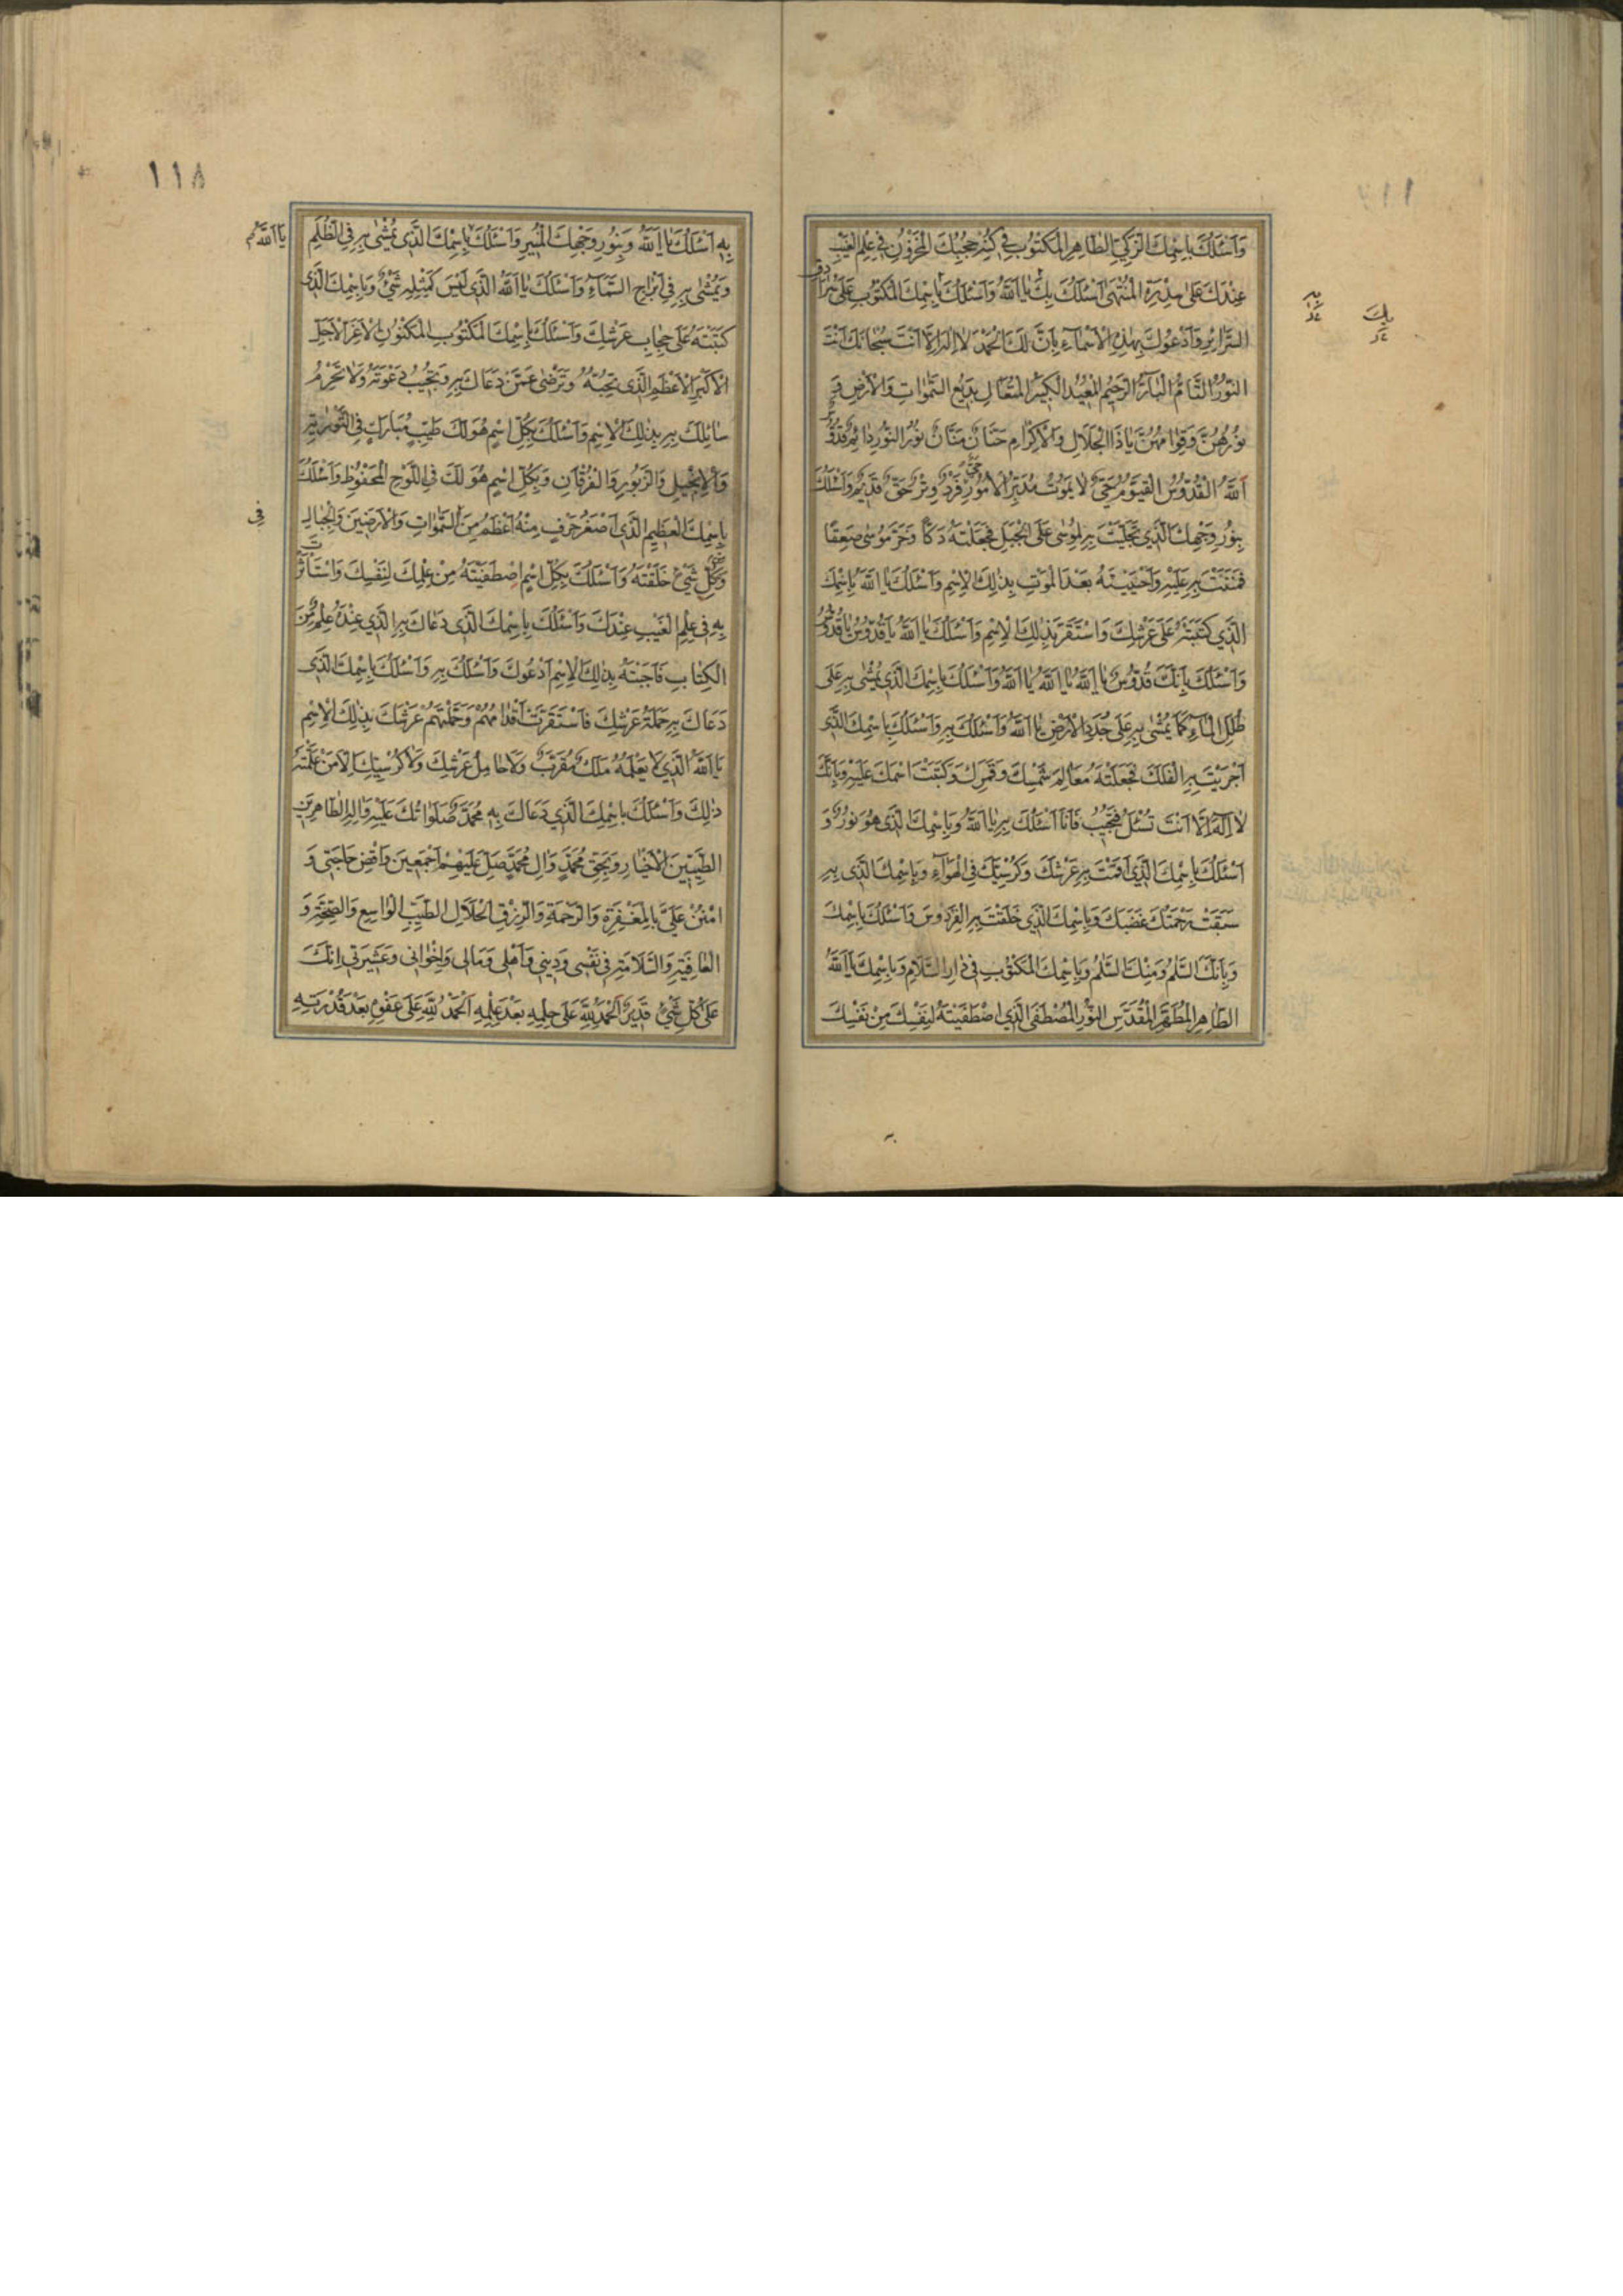 ١١٧
وَاَسْئَلُكَ بِاسْمِكَ الزَّكِيِّ الطَّاهِرِ الْمَكْتُوبِ فِي كُنْهِ حُجُبِكَ الْمَخْزُونِ فِي عِلْمِ الْغَيْبِ
عِنْدَكَ عَلىٰ سِدْرَةِ الْمُنْتَهىٰ اَسْئَلُكَ بِكَ يٰا اَللّٰهُ وَاَسْئَلُكَ بِاسْمِكَ الْمَكْتُوبِ عَلىٰ سُرَادِقِ
السَّرٰائِرِ وَاَدْعُوكَ بِهٰذِهِ الْاَسْمٰاءِ بِاَنَّ لَكَ الْحَمْدُ لٰا اِلٰهَ اِلّٰا اَنْتَ سُبْحٰانَكَ اَنْتَ
النُّورُ التّٰامُّ الْبٰارُّ الرَّحِيمُ الْمُعِيدُ الْكَبِيرُ الْمُتَعٰالِ بَدِيعُ السَّمٰوٰاتِ وَالْاَرْضِ وَ
نُورُهُنَّ وَقِوٰامُهُنَّ يٰا ذَا الْجَلٰالِ وَالْاِكْرٰامِ حَنّٰانٌ مَنّٰانٌ نُورُ النُّورِ دٰائِمٌ قُدُّوسٌ
اَللّٰهُ الْقُدُّوسُ الْقَيُّومُ حَيٌّ لٰا يَمُوتُ مُدَبِّرُ الْاُمُورِ فَرْدٌ وِتْرٌ حَقٌّ قَدِيمٌ وَاَسْئَلُكَ
بِنُورِ وَجْهِكَ الَّذِي تَجَلَّيْتَ بِهِ لِمُوسىٰ عَلَى الْجَبَلِ فَجَعَلْتَهُ دَكّاً وَخَرَّ مُوسىٰ صَعِقاً
فَمَنَنْتَ بِهِ عَلَيْهِ وَاَحْيَيْتَهُ بَعْدَ الْمَوْتِ بِذٰلِكَ الْاِسْمِ وَاَسْئَلُكَ يٰا اَللّٰهُ بِاسْمِكَ
الَّذِي كَتَبْتَهُ عَلىٰ عَرْشِكَ وَاسْتَقَرَّ بِذٰلِكَ الْاِسْمِ وَاَسْئَلُكَ يٰا اَللّٰهُ يٰا قُدُّوسُ يٰا قُدُّوسُ
وَاَسْئَلُكَ بِاَنَّكَ قُدُّوسٌ يٰا اَللّٰهُ يٰا اَللّٰهُ يٰا اَللّٰهُ وَاَسْئَلُكَ بِاسْمِكَ الَّذِي يُمْشىٰ بِهِ عَلىٰ
ظُلَلِ الْمٰاءِ كَمٰا يُمْشىٰ بِهِ عَلىٰ جُدَدِ الْاَرْضِ يٰا اَللّٰهُ وَاَسْئَلُكَ بِهِ وَاَسْئَلُكَ بِاسْمِكَ الَّذِي
اَجْرَيْتَ بِهِ الْفَلَكَ فَجَعَلْتَهُ مَعٰالِمَ شَمْسِكَ وَقَمَرِكَ وَكَتَبْتَ اسْمَكَ عَلَيْهِ وَبِاَنَّكَ
لٰا اِلٰهَ اِلّٰا اَنْتَ تُسْئَلُ فَتُجِيبُ فَاَنَا اَسْئَلُكَ بِهِ يٰا اَللّٰهُ وَبِاسْمِكَ الَّذِي هُوَ نُورٌ وَ
اَسْئَلُكَ بِاسْمِكَ الَّذِي اَقَمْتَ بِهِ عَرْشَكَ وَكُرْسِيَّكَ فِي الْهَوٰاءِ وَبِاسْمِكَ الَّذِي بِهِ
سَبَقَتْ رَحْمَتُكَ غَضَبَكَ وَبِاسْمِكَ الَّذِي خَلَقْتَ بِهِ الْفِرْدَوْسَ وَاَسْئَلُكَ بِاسْمِكَ
وَبِاَنَّكَ السَّلٰمُ وَمِنْكَ السَّلٰمُ وَبِاسْمِكَ الْمَكْتُوبِ فِي دٰارِ السَّلٰامِ وَبِاسْمِكَ يٰا اَللّٰهُ
الطّٰاهِرِ الْمُطَهَّرِ الْمُقَدَّسِ النُّورِ الْمُصْطَفَى الَّذِي اصْطَفَيْتَهُ لِنَفْسِكَ مِنْ نَفْسِكَ
بِكَ
١١٨
بِهِ اَسْئَلُكَ يٰا اَللّٰهُ وَبِنُورِ وَجْهِكَ الْمُنِيرِ وَاَسْئَلُكَ بِاسْمِكَ الَّذِي يُمْشىٰ بِهِ فِي الظُّلَمِ
وَيُمْشىٰ بِهِ فِي اَبْرَاجِ السَّمٰاءِ وَاَسْئَلُكَ يٰا اَللّٰهُ الَّذِي لَيْسَ كَمِثْلِهِ شَيْءٌ وَبِاسْمِكَ الَّذِي
كَتَبْتَهُ عَلىٰ حِجٰابِ عَرْشِكَ وَاَسْئَلُكَ بِاسْمِكَ الْمَكْتُوبِ الْمَكْنُونِ الْاَعَزِّ الْاَجَلِّ
الْاَكْبَرِ الْاَعْظَمِ الَّذِي تُحِبُّهُ وَتَرْضىٰ عَمَّنْ دَعٰاكَ بِهِ وَتُجِيبُ دَعْوَتَهُ وَلٰا تَحْرِمُ
سٰائِلَكَ بِهِ بِذٰلِكَ الْاِسْمِ وَاَسْئَلُكَ بِكُلِّ اسْمٍ هُوَ لَكَ طَيِّبٍ مُبٰارَكٍ فِي التَّوْرٰيةِ
وَالْاِنْجِيلِ وَالزَّبُورِ وَالْفُرْقٰانِ وَبِكُلِّ اسْمٍ هُوَ لَكَ فِي اللَّوْحِ الْمَحْفُوظِ وَاَسْئَلُكَ
بِاسْمِكَ الْعَظِيمِ الَّذِي اَصْغَرُ حَرْفٍ مِنْهُ اَعْظَمُ مِنَ السَّمٰوٰاتِ وَالْاَرَضِينَ وَالْجِبٰالِ
وَكُلِّ شَيْءٍ خَلَقْتَهُ وَاَسْئَلُكَ بِكُلِّ اسْمٍ اصْطَفَيْتَهُ مِنْ عِلْمِكَ لِنَفْسِكَ وَاسْتَأْثَرْتَ
بِهِ فِي عِلْمِ الْغَيْبِ عِنْدَكَ وَاَسْئَلُكَ بِاسْمِكَ الَّذِي دَعٰاكَ بِهِ الَّذِي عِنْدَهُ عِلْمٌ مِنَ
الْكِتٰابِ فَاَجَبْتَهُ بِذٰلِكَ الْاِسْمِ اَدْعُوكَ وَاَسْئَلُكَ بِهِ وَاَسْئَلُكَ بِاسْمِكَ الَّذِي
دَعٰاكَ بِهِ حَمَلَةُ عَرْشِكَ فَاسْتَقَرَّتْ اَقْدٰامُهُمْ وَحَمَّلْتَهُمْ عَرْشَكَ بِذٰلِكَ الْاِسْمِ
يٰا اَللّٰهُ الَّذِي لٰا يَعْلَمُهُ مَلَكٌ مُقَرَّبٌ وَلٰا حٰامِلُ عَرْشِكَ وَلٰا كُرْسِيِّكَ اِلّٰا مَنْ عَلَّمْتَهُ
ذٰلِكَ وَاَسْئَلُكَ بِاسْمِكَ الَّذِي دَعٰاكَ بِهِ مُحَمَّدٌ صَلَوٰاتُكَ عَلَيْهِ وَاٰلِهِ الطّٰاهِرِينَ
الطَّيِّبِينَ الْاَخْيٰارِ وَبِحَقِّ مُحَمَّدٍ وَاٰلِ مُحَمَّدٍ صَلِّ عَلَيْهِمْ اَجْمَعِينَ وَاقْضِ حٰاجَتِي وَ
امْنُنْ عَلَيَّ بِالْمَغْفِرَةِ وَالرَّحْمَةِ وَالرِّزْقِ الْحَلٰالِ الطَّيِّبِ الْوٰاسِعِ وَالصِّحَّةِ وَ
الْعٰافِيَةِ وَالسَّلٰامَةِ فِي نَفْسِي وَدِينِي وَاَهْلِي وَمٰالِي وَاِخْوٰانِي وَعَشِيرَتِي اِنَّكَ
عَلىٰ كُلِّ شَيْءٍ قَدِيرٌ اَلْحَمْدُ لِلّٰهِ عَلىٰ حِلْمِهِ بَعْدَ عِلْمِهِ اَلْحَمْدُ لِلّٰهِ عَلىٰ عَفْوِهِ بَعْدَ قُدْرَتِهِ
يٰا اَللّٰهُ
فِي